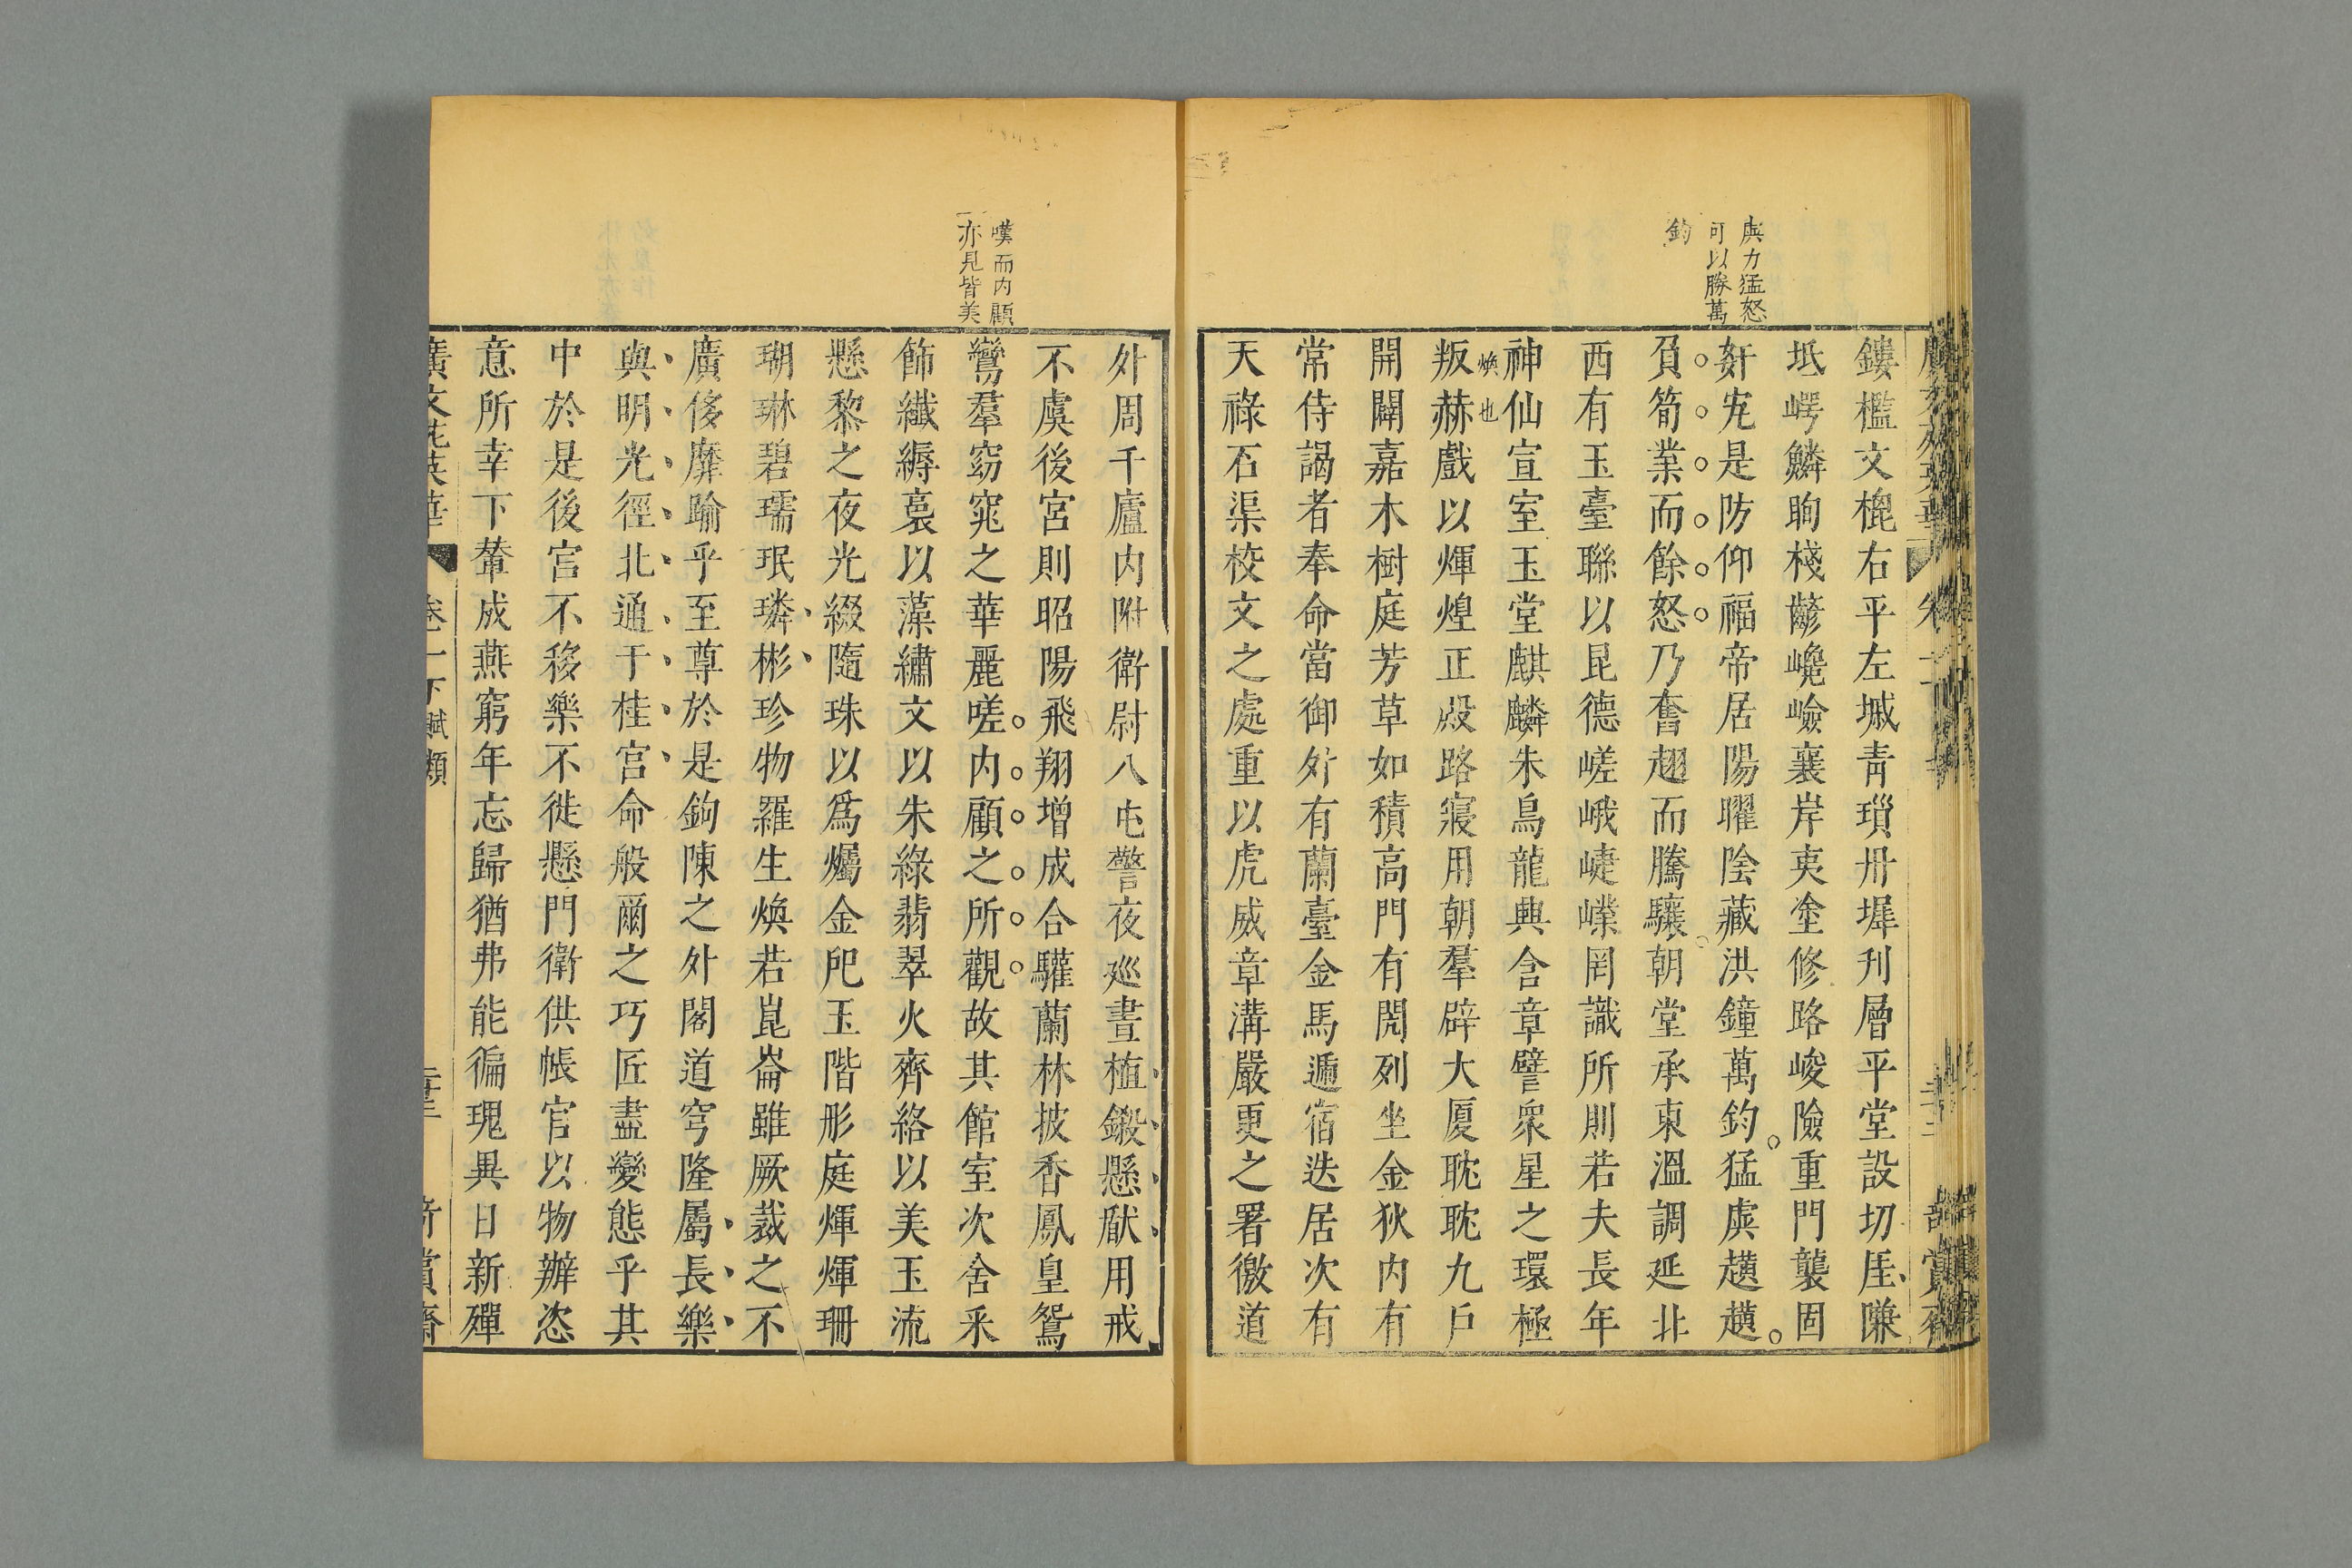 與力猛怒
可以勝萬
鈞
鏤檻文㮰右平左墄青瑣丹墀刋層平堂設切厓隒
坻崿鱗眴棧齴巉嶮襄岸夷塗修路峻險重門襲固
奸宄是防仰福帝居陽曜陰藏洪鐘萬鈞猛虡趪趪
負筍業而餘怒乃奮翅而騰驤朝堂承東溫調延北
西有玉臺聯以昆德嵯峨崨嶫罔識所則若夫長年
神仙宣室玉堂麒麟朱鳥龍興含章譬衆星之環極
叛赫戲以煇煌正殿路寢用朝羣辟大厦耽耽九戶
煥也
開闢嘉木樹庭芳草如積高門有閌列坐金狄内有
常侍謁者奉命當御外有蘭臺金馬遞宿迭居次有
天祿石渠校文之處重以虎威章溝嚴更之署徼道
嘆而内顧
亦見皆美
外周千廬内附衛尉八屯警夜廵晝植鎩懸瞂用戒
不虞後宮則昭陽飛翔增成合驩蘭林披香鳳皇鴛
鸞羣窈窕之華麗嗟内顧之所觀故其館室次舍采
飾纖縟裛以藻繡文以朱綠翡翠火齊絡以美玉流
懸黎之夜光綴隨珠以爲燭金戺玉階彤庭煇煇珊
瑚琳碧瓀珉璘彬珍物羅生煥若崑崙雖厥裁之不
廣侈靡踰乎至尊於是鉤陳之外閣道穹隆屬長樂
與明光徑北通于桂宮命般爾之巧匠盡變態乎其
中於是後宮不移樂不徙懸門衛供帳官以物辦恣
意所幸下輦成燕窮年忘歸猶弗能徧瑰異日新殫
廣文苑英華 卷一下賦類 二十三 奇賞齋